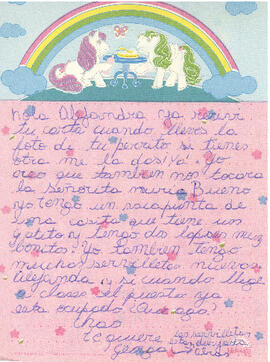 Hola Alejandra ya recivi
tu carta cuando lleves la
foto de tu perrito si tienes
otra me la das ¡Ya! Yo
creo que tambien nos tocara
la Señorita maria Bueno
yo tengo un sacapunta de
una casita que tiene un
gatito y tengo dos lapices muy
bonitos. Yo tambien tengo
muchas servilletas nuevas
Alejandra y si cuando llege
a clase el puesto ya
esta ocupado
Chao
te quiere
las servilletas